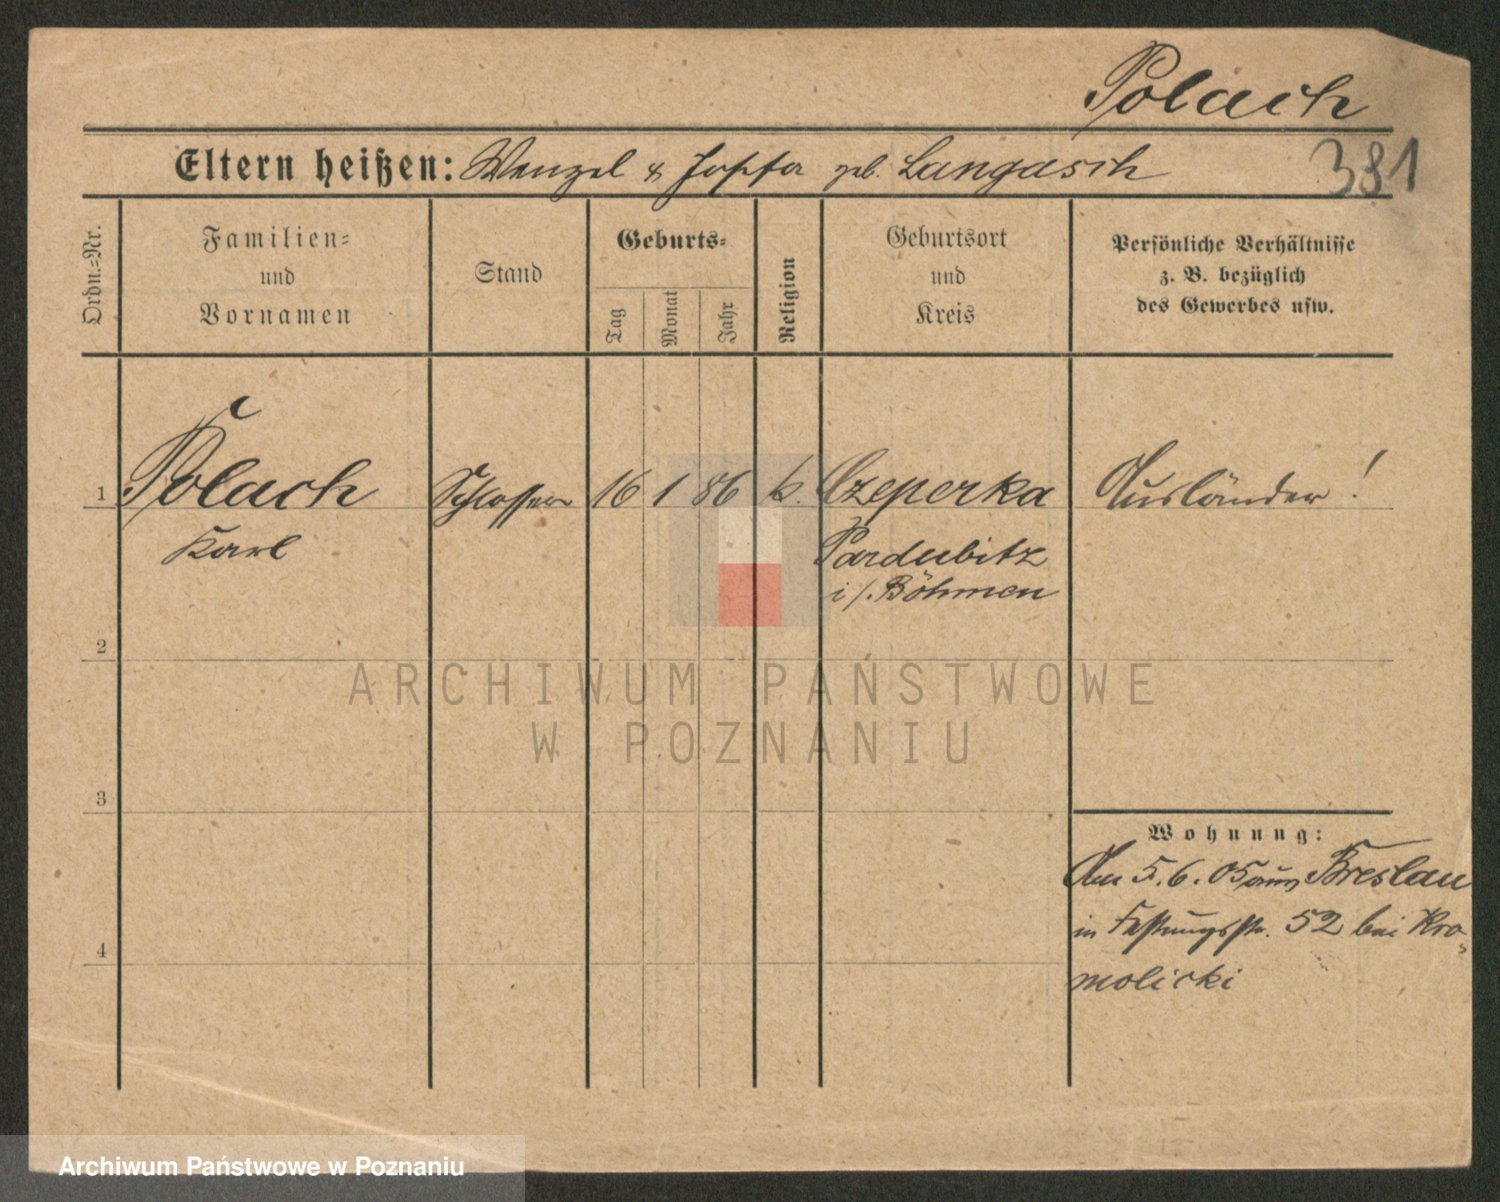 Polach
381
Eltern heißen: Wenzel & Josefa geb. Langasch
Ordn.=Nr.
Familien=
und
Vornamen
Stand
Geburts=
Tag
Monat
Jahr
Religion
Geburtsort
und
Kreis
Persönliche Verhältnisse
z. B. bezüglich
des Gewerbes usw.
1 Polach Schlosser 16 1 86 k. Czeperka Ausländer!
Karl Pardubitz
i/. Böhmen
2
ARCHIWUM PAŃSTWOWE
W POZNANIU
3
Wohnung:
Am 5.6.05 aus Breslau
in Festungsstr. 52 bei Kro=
4
molicki
Archiwum Państwowe w Poznaniu